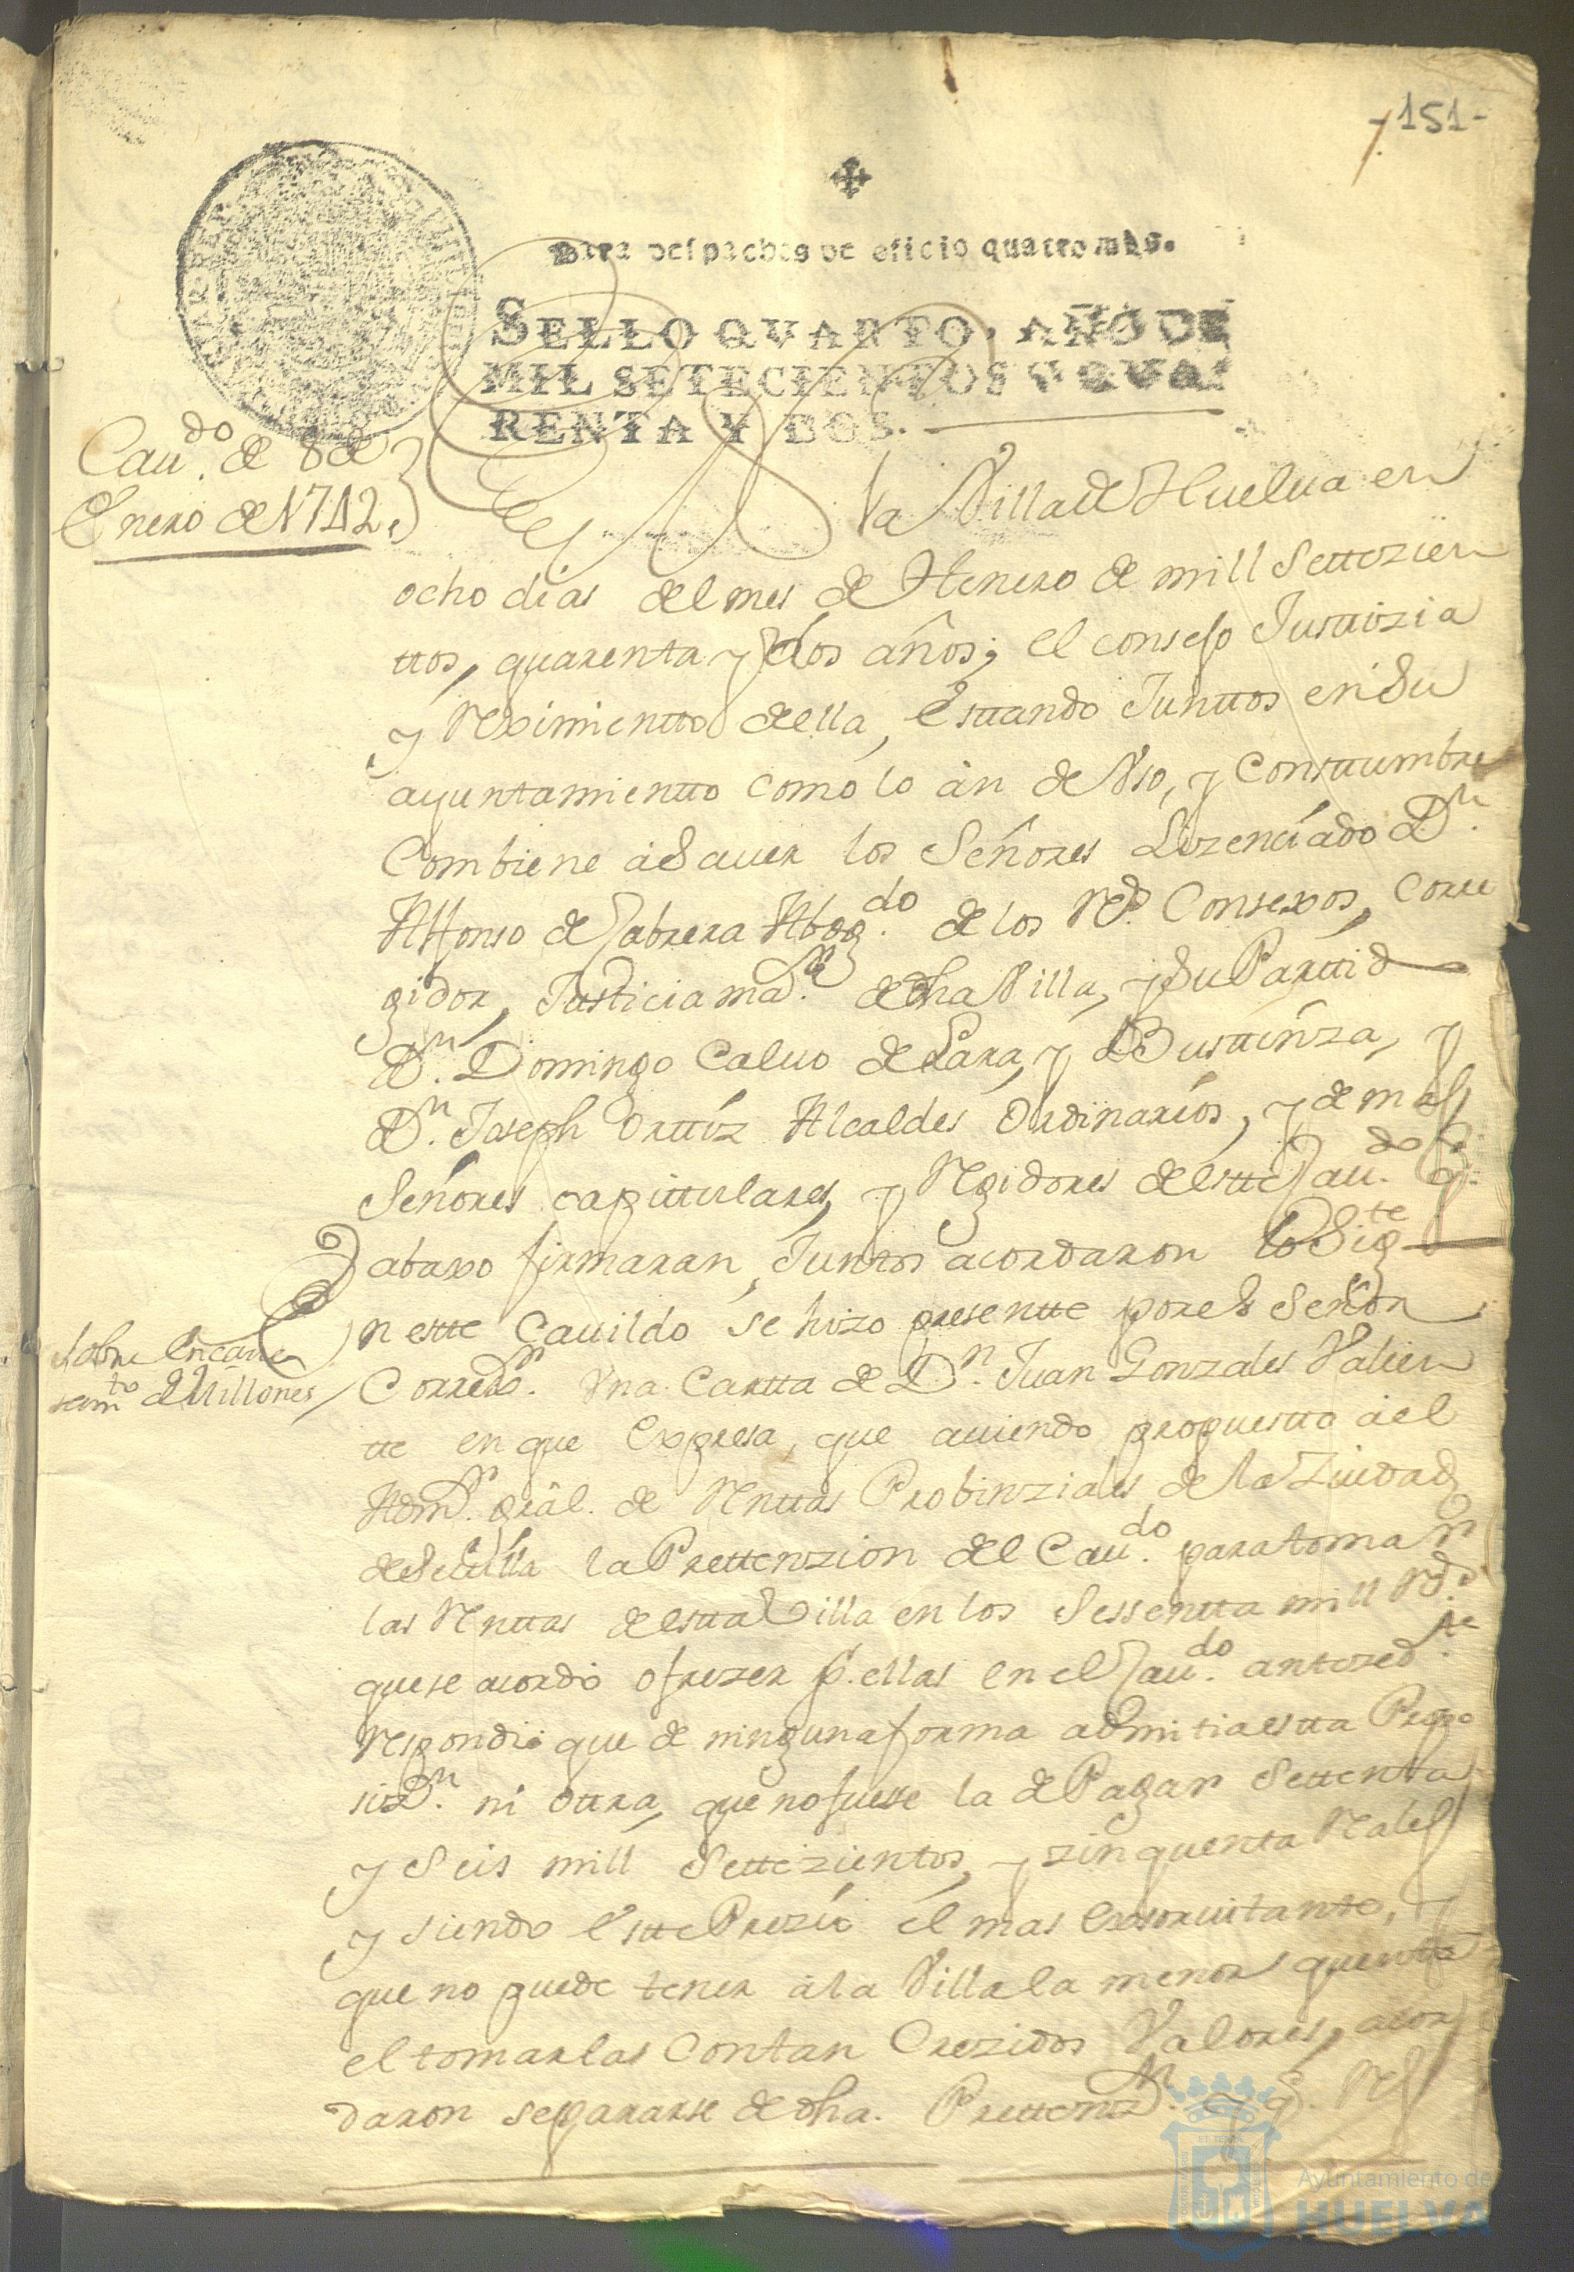 -151-
Para despachos de oficio quatro mrs.
SELLO QVARTO, AÑO DE
MIL SETECIENTOS Y QVA-
RENTA Y DOS.
Cau.do de 8 de
Enero de 1742
En la Villa de Huelva en
ocho dias del mes de Henero de mill Settezien
ttos, quarenta y dos años; el consejo Justtizia
y Reximientto della, Esttando Junttos en su
ayuntamientto como lo àn de Vso, y Consttumbre
Combiene à Sauer los Señores Lizenciado Dn.
Alfonso de Cabrera Abog.do de los Rs. Consexos, Corre
gidor, Justicia maor. de dha Villa, y su Parttid
Dn. Domingo Caluo de Lara, y Busttinza, y
Dn. Joseph Orttiz Alcaldes Ordinarios, y demas
Señores capittulares, y Regidores de estte Cau.do q.
abaxo firmaran, Juntos acordaron lo Sig.te
Sobre Encave
zam.to de Millones
En estte Cauildo se hizo presentte por el Señor
Corredor. Vna Cartta de Dn. Juan Gonzales Valien
tte en que Expresa, que auiendo propuestto à el
Admor. grâl. de Renttas Probinziales de la Ziudad
de Seuilla la Prettenzion del Cau.do para tomar
las Renttas de estta Villa en los Sessentta mill Rs.
que se acordò ofrezer p. ellas en el Cau.do antezed.te
Respondiò que de ninguna forma admitia estta Propo
sizn. ni ottra, que no fuesse la de Pagar Settenta
y Seis mill Settezientos, y zinquenta Reales
y siendo Estte Prezio el mas Exsorvitante, y
que no puede tener à la Villa la menor quentta
el tomarlas con tan Crezidos Valores, acor
daron separarse de dha. Prettenzn. y q. Rs
Ayuntamiento de
HUELVA